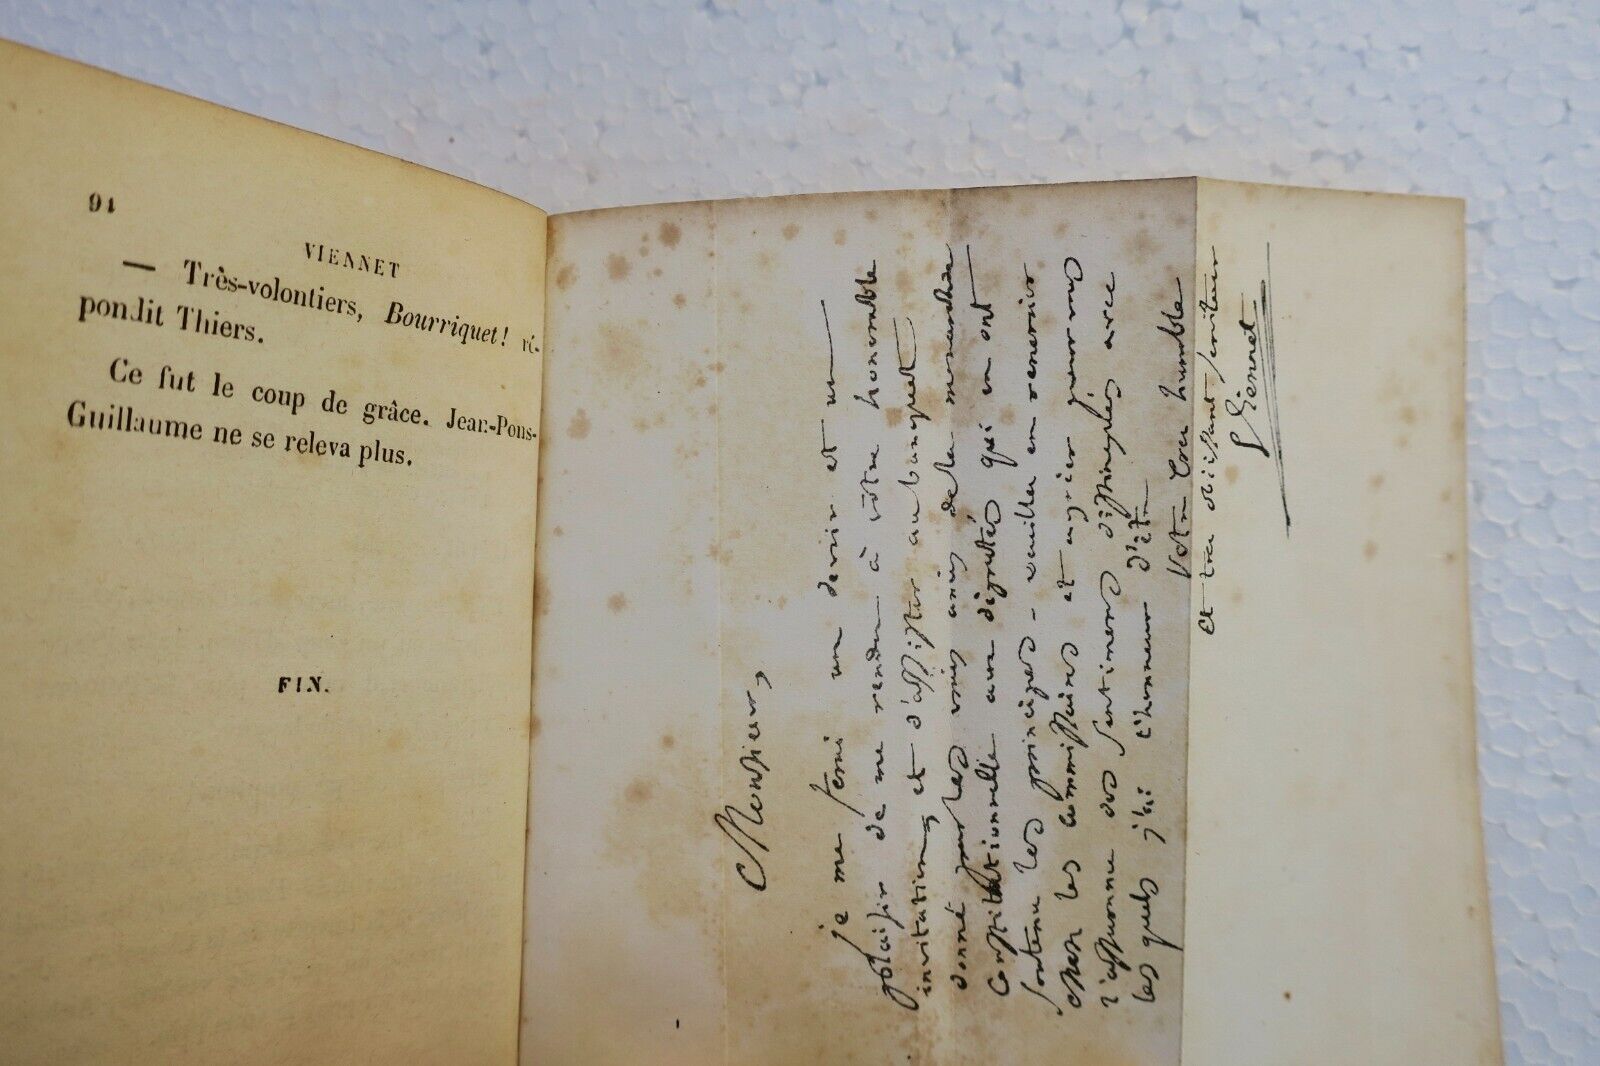 91
VIENNET
— Très-volontiers, Bourriquet! ré-
pondit Thiers.
Ce fut le coup de grâce. Jean-Pons-
Guillaume ne se releva plus.
FIN.
Monsieur,
je me ferai un devoir et un
plaisir de me rendre à votre honorable
invitation, et d'assister au banquet
donné par les vrais amis de la monarchie
Constitutionnelle aux députés qui en ont
soutenu les principes - veuillez en remercier
chez les commissaires et agréer pour vous
l'assurance des sentimens distingués avec
les quels j'ai l'honneur d'etre
Votre très humble
et très obéissant serviteur
Viennet